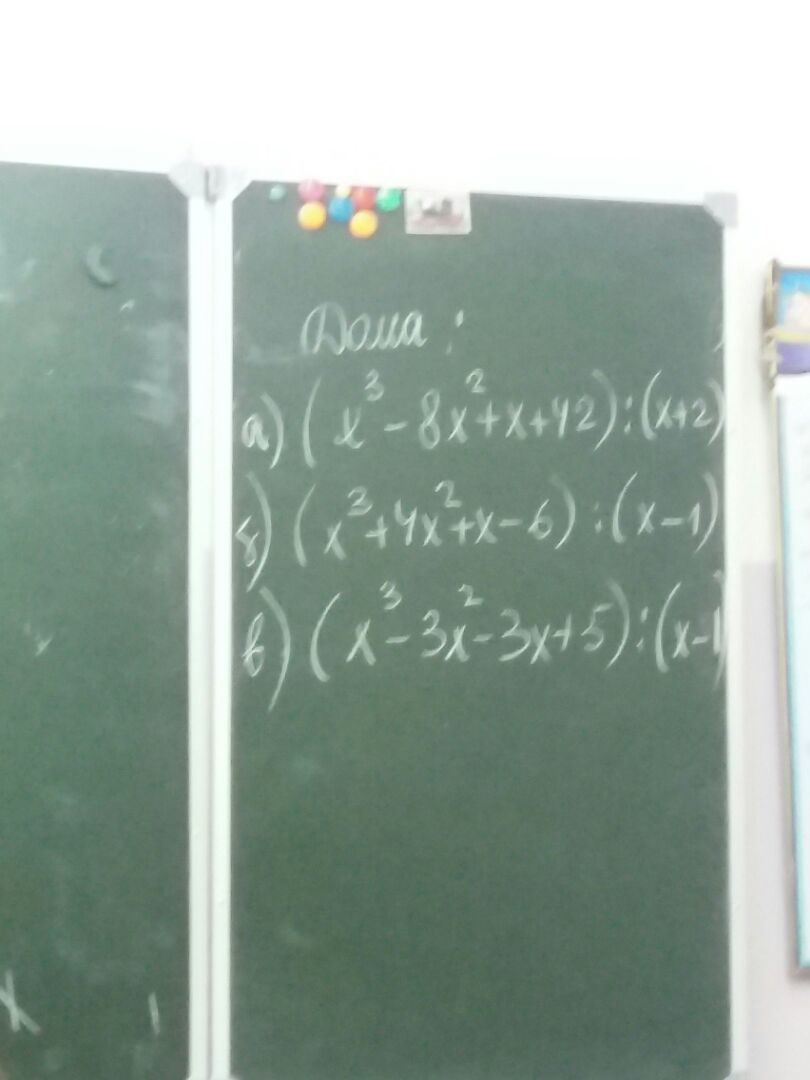 Дома:
а) (x³ - 8x² + x + 42) : (x+2)
б) (x³ + 4x² + x - 6) : (x - 1)
в) (x³ - 3x² - 3x + 5) : (x - 1)
x 1